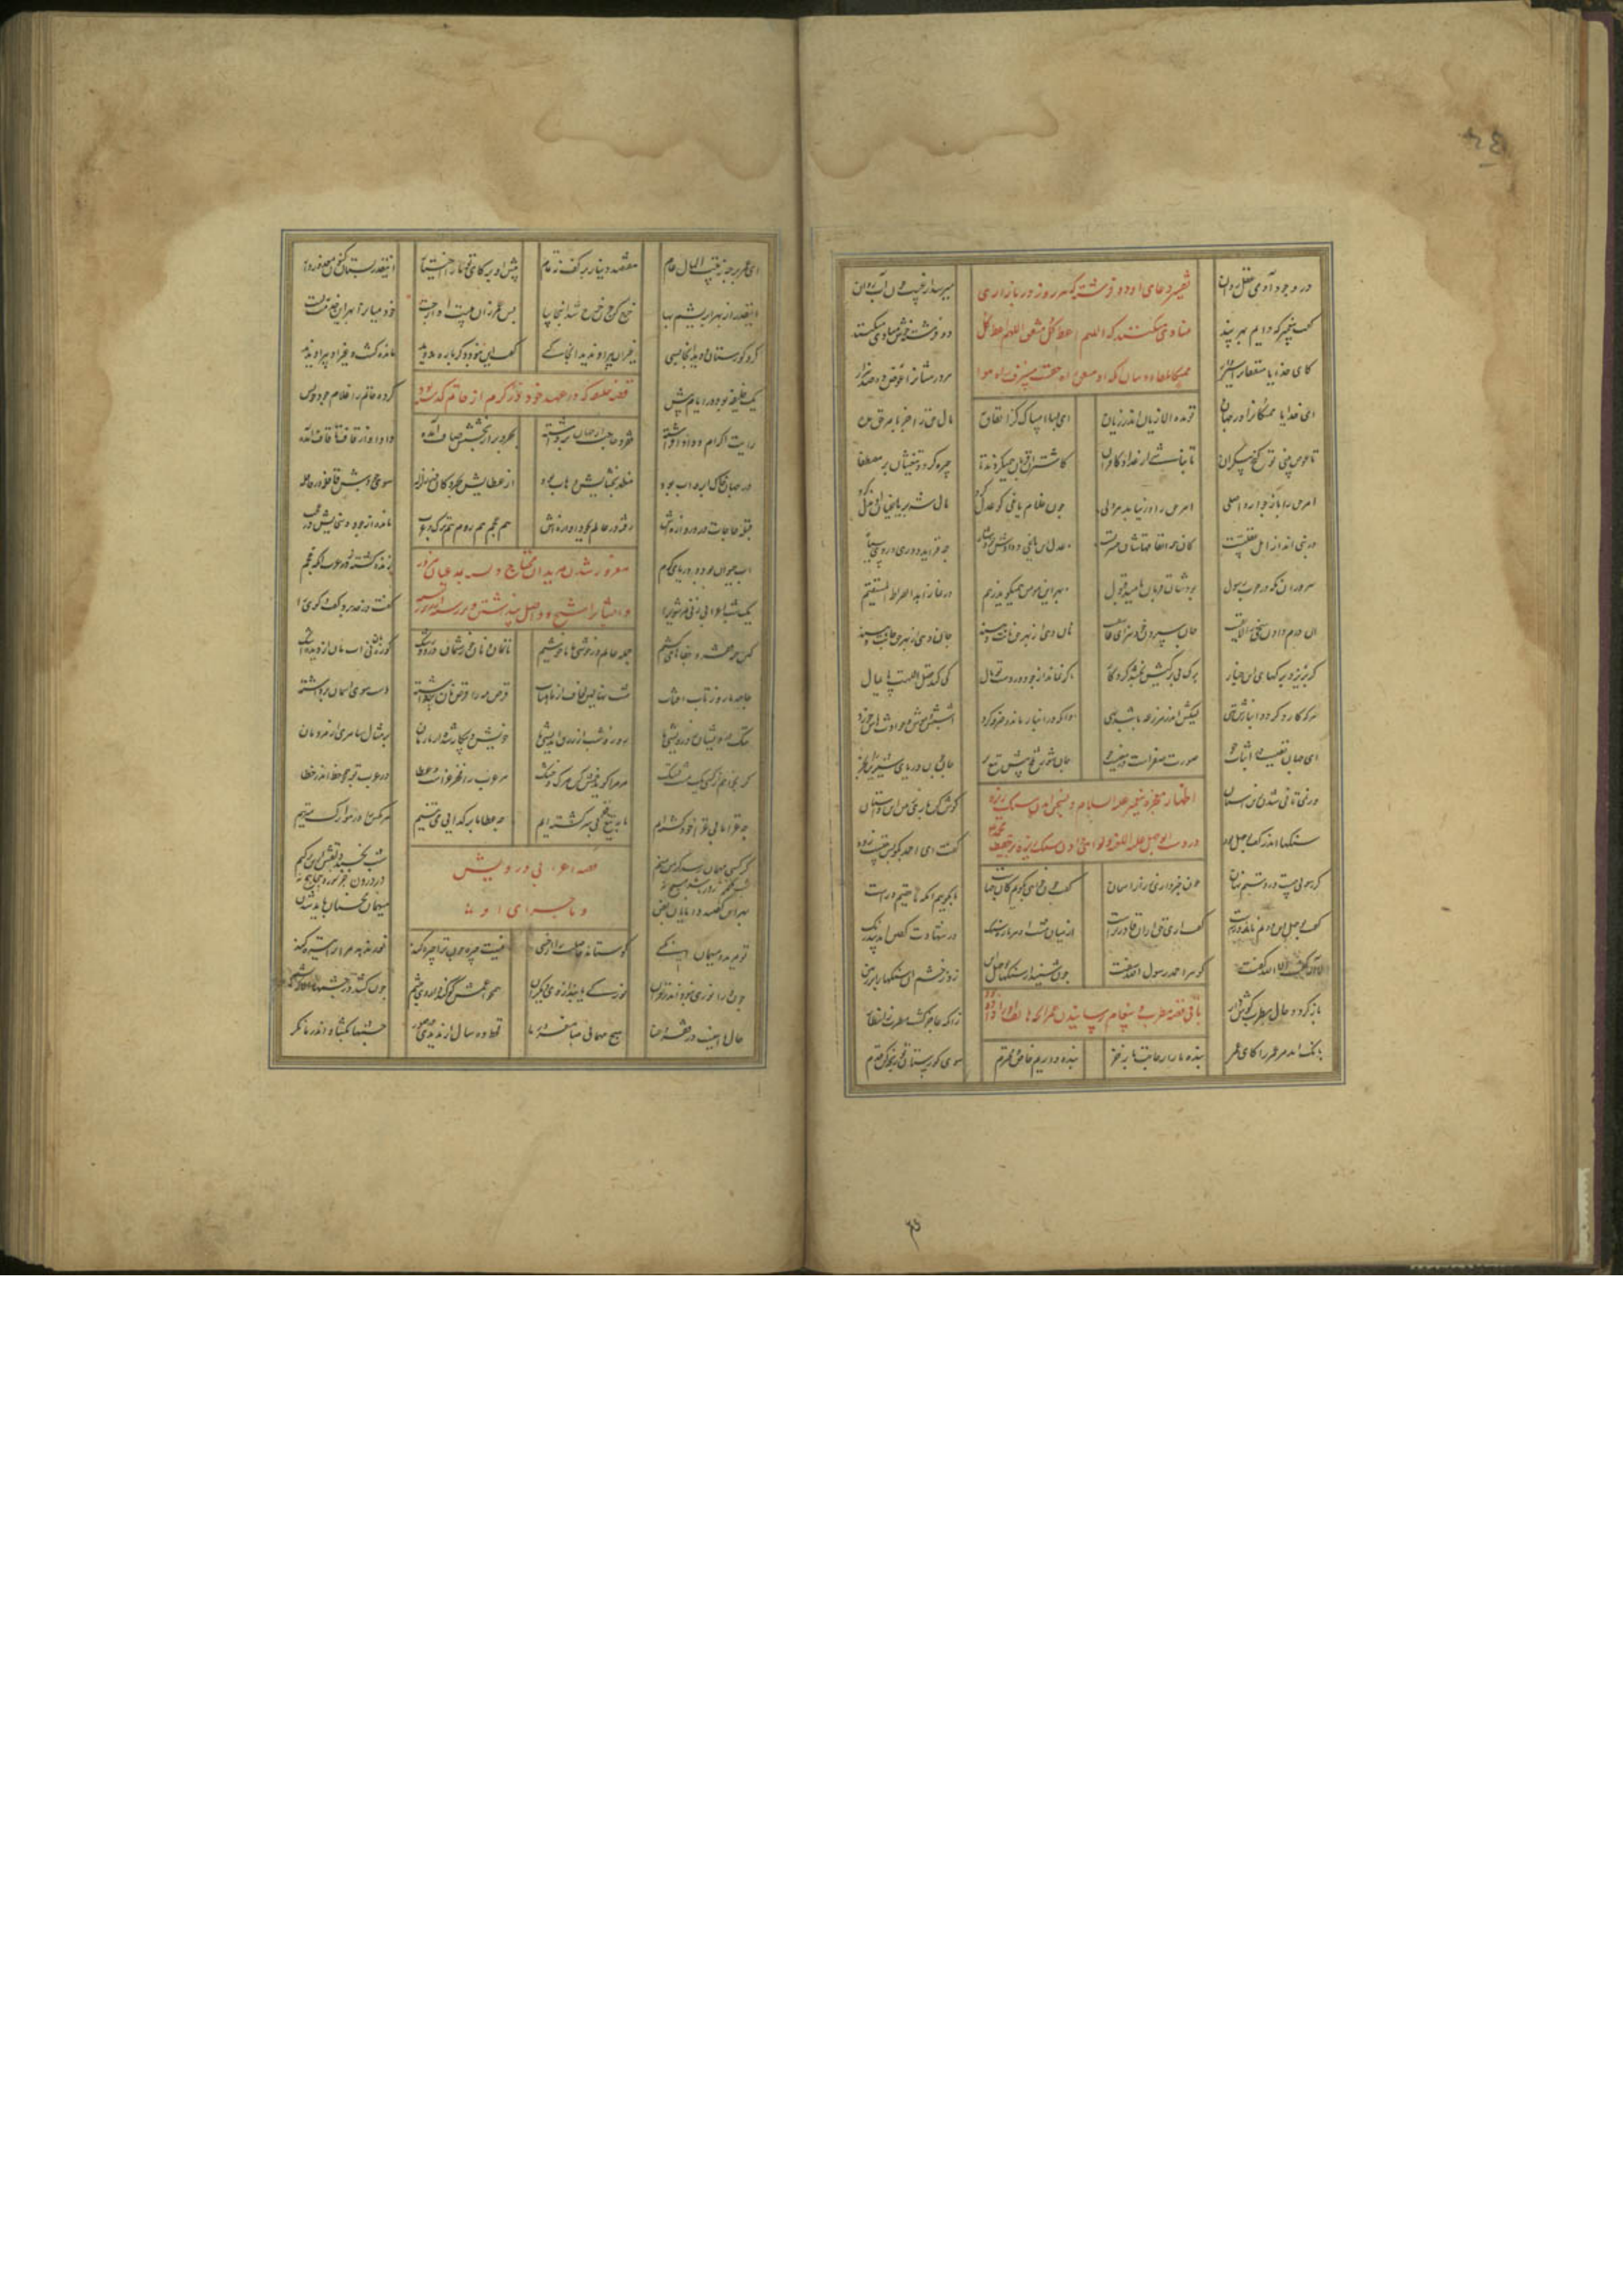 در وجود آدمی عقل و روان میرسد از غیب چون آب روان
تفسیر دعای آن دو فرشته که هر روز در بازاری
منادی میکنند که اللهم اعط کل منفق اللهم اعط کل
گفت پیغمبر که دایم بهر پند دو فرشته خوش منادی میکنند
کای خدایا منفقان را سیر دار هر درمشان را عوض ده صد هزار
ای خدایا ممسکان را در جهان تو مده الا زیان اندر زیان
ای بسا امساک کز انفاق به مال حق را جز بامر حق مده
تا عوض یابی تو گنج بیکران تا نباشی از عداد کافران
کاشتران قربان همیکردند تا چیره گردد تیغشان بر مصطفا
امر حق را باز جو از واصلی امر حق را در نیابد هر دلی
چون غلام یاغی کو عدل کرد مال شه بر یاغیان او بذل کرد
در نبی انذار اهل غفلتست کان همه انفاقهاشان حسرتست
عدل این یاغی و دادش نزد شاه چه فزاید دوری و روی سیاه
سروران مکه در حرب رسول بودشان قربان بامید قبول
بهر این مومن همیگوید ز بیم در نماز اهد الصراط المستقیم
آن درم دادن سخی را لایقست جان سپردن خود سخای عاشقست
نان دهی از بهر حق نانت دهند جان دهی از بهر حق جانت دهند
گر بریزد برگهای این چنار برگ بی برگیش بخشد کردگار
گر نماند از جود در دست تو مال کی کند فضل الهت پایمال
هر که کارد گردد انبارش تهی لیکش اندر مزرعه باشد بهی
وانکه در انبار ماند و صرفه کرد اشپش و موش حوادثهاش خورد
این جهان نفیست در اثبات جو صورتت صفرست در معنیت جو
جان شور تلخ پیش تیغ بر جان چون دریای شیرین را بخر
ور نمی تانی شدن زین آستان گوش کن باری ز من این داستان
اظهار معجزه پیغمبر علیه السلام و بسخن آمدن سنگ ریزه
در دست ابوجهل علیه اللعنه
سنگها اندر کف بوجهل بود گفت ای احمد بگو این چیست زود
گر رسولی چیست در مشتم نهان چون خبر داری ز راز آسمان
گفت چون خواهی بگویم کان چهاست یا بگویند آنکه ما حقیم و راست
گفت بوجهل این دوم نادرترست گفت آری حق از آن قادرترست
از میان مشت او هر پاره سنگ در شهادت گفتن آمد بیدرنگ
لا اله گفت الا الله گفت گوهر احمد رسول الله سفت
چون شنید از سنگها بوجهل این زد ز خشم آن سنگها را بر زمین
باز گرد و حال مطرب گوش دار زانکه عاجز گشت مطرب ز انتظار
باقی قصه مطرب و پیغام رسانیدن عمر
بانگ آمد مر عمر را کای عمر بنده ما را ز حاجت باز خر
بنده داریم خاص و محترم سوی گورستان تو رنجه کن قدم
ای عمر برجه ز بیت المال عام هفتصد دینار بر کف نه تمام
پیش او بر کای تو ما را اختیار اینقدر بستان کنون معذور دار
اینقدر از بهر ابریشم بها خرج کن چون خرج شد اینجا بیا
پس عمر زان هیبت آواز جست تا میان را بهر این خدمت ببست
گرد گورستان دوید
غیر آن پیر او ندید آنجا کسی
مانده گشت و غیر آن پیر او ندید
قصه خلیفه که در عهد خود در کرم از حاتم گذشته بود
یک خلیفه بود در ایام پیش کرده حاتم را غلام جود خویش
رایت اکرام و داد افراشته فقر و حاجت از جهان برداشته
بحر و در از بخششش صاف آمده داد او از قاف تا قاف آمده
در جهان خاک ابر و آب بود مظهر بخشایش وهاب بود
از عطایش بحر و کان در زلزله سوی جودش قافله بر قافله
قبله حاجات در و دروازه اش رفته در عالم بجود آوازه اش
هم عجم هم روم هم ترک و عرب مانده از جود و سخایش در عجب
آب حیوان بود و دریای کرم زنده گشته هم عرب زو هم عجم
مغرور شدن مریدان محتاج و بمدعیان مزور
یک شب اعرابی زنی مر شوی را گفت و از حد برد گفت و گوی را
کین همه فقر و جفا ما میکشیم جمله عالم در خوشی ما ناخوشیم
نانمان نی نان خورشمان درد و رشک کوزه مان نی آب مان از دیده اشک
جامه ما روز تاب آفتاب شب نهالین و لحاف از ماهتاب
قرص مه را قرص نان پنداشته دست سوی آسمان برداشته
ننگ درویشان ز درویشی ما روز و شب از روزی اندیشی ما
خویش و بیگانه شده از ما رمان بر مثال سامری از مردمان
گر بخواهم از کسی یک مشت نسک مر مرا گوید خمش کن مرگ و جسک
مر عرب را فخر غزوست و عطا در عرب تو همچو خط اندر خطا
چه غزا ما بی غزا خود کشته ایم ما بتیغ فقر بی سر گشته ایم
چه عطا ما بر گدایی می تنیم مر مگس را در هوا رگ میزنیم
قصه اعرابی درویش
و ماجرای او
گر کسی مهمان رسد گر من منم شب بخسبد دلقش از تن بر کنم
بهر این گفتند دانایان بفن میهمان محسنان باید شدن
تو مرید و میهمان آن کسی کو ستاند حاصلت را از خسی
نیست چیره چون ترا چیره کند نور ندهد مر ترا تیره کند
چون ورا نوری نبود اندر قران نور کی یابند از وی دیگران
همچو اعمش کو کند داروی چشم چون کشد در چشمها الا که یشم
حال ما اینست در فقر و عنا هیچ مهمانی مبا مغرور ما
قحط ده سال ار ندیدی در صور چشمها بگشا و اندر ما نگر